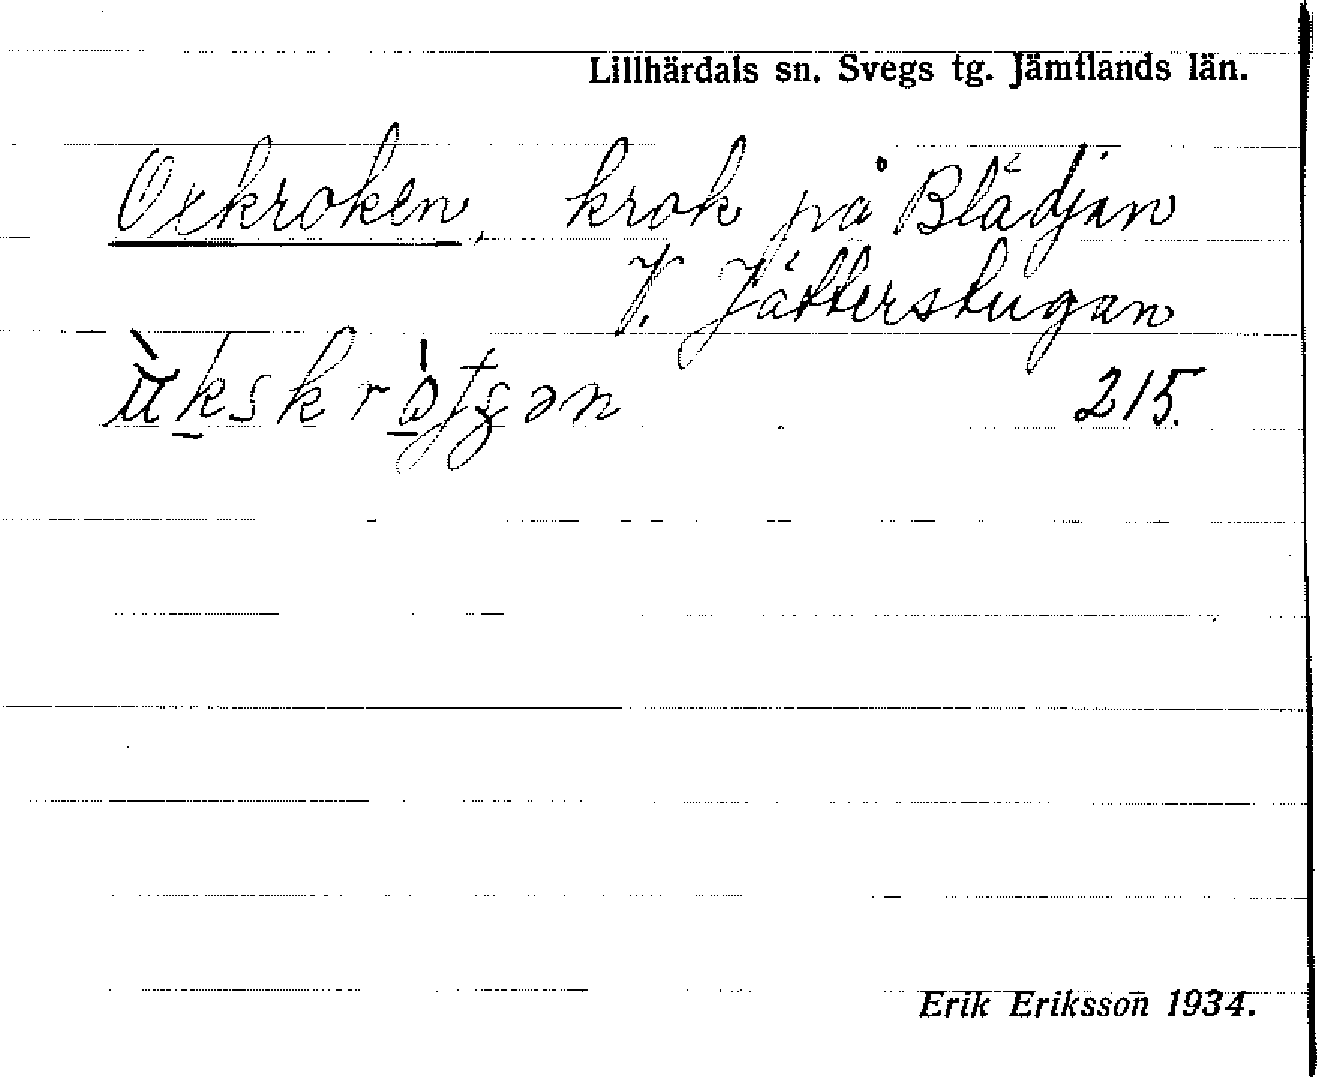 Lillhärdals sn. Svegs tg. Jämtlands län.
Oxkroken, krok på Blädjan
V. Jätterstugan
215.
Erik Eriksson 1934.